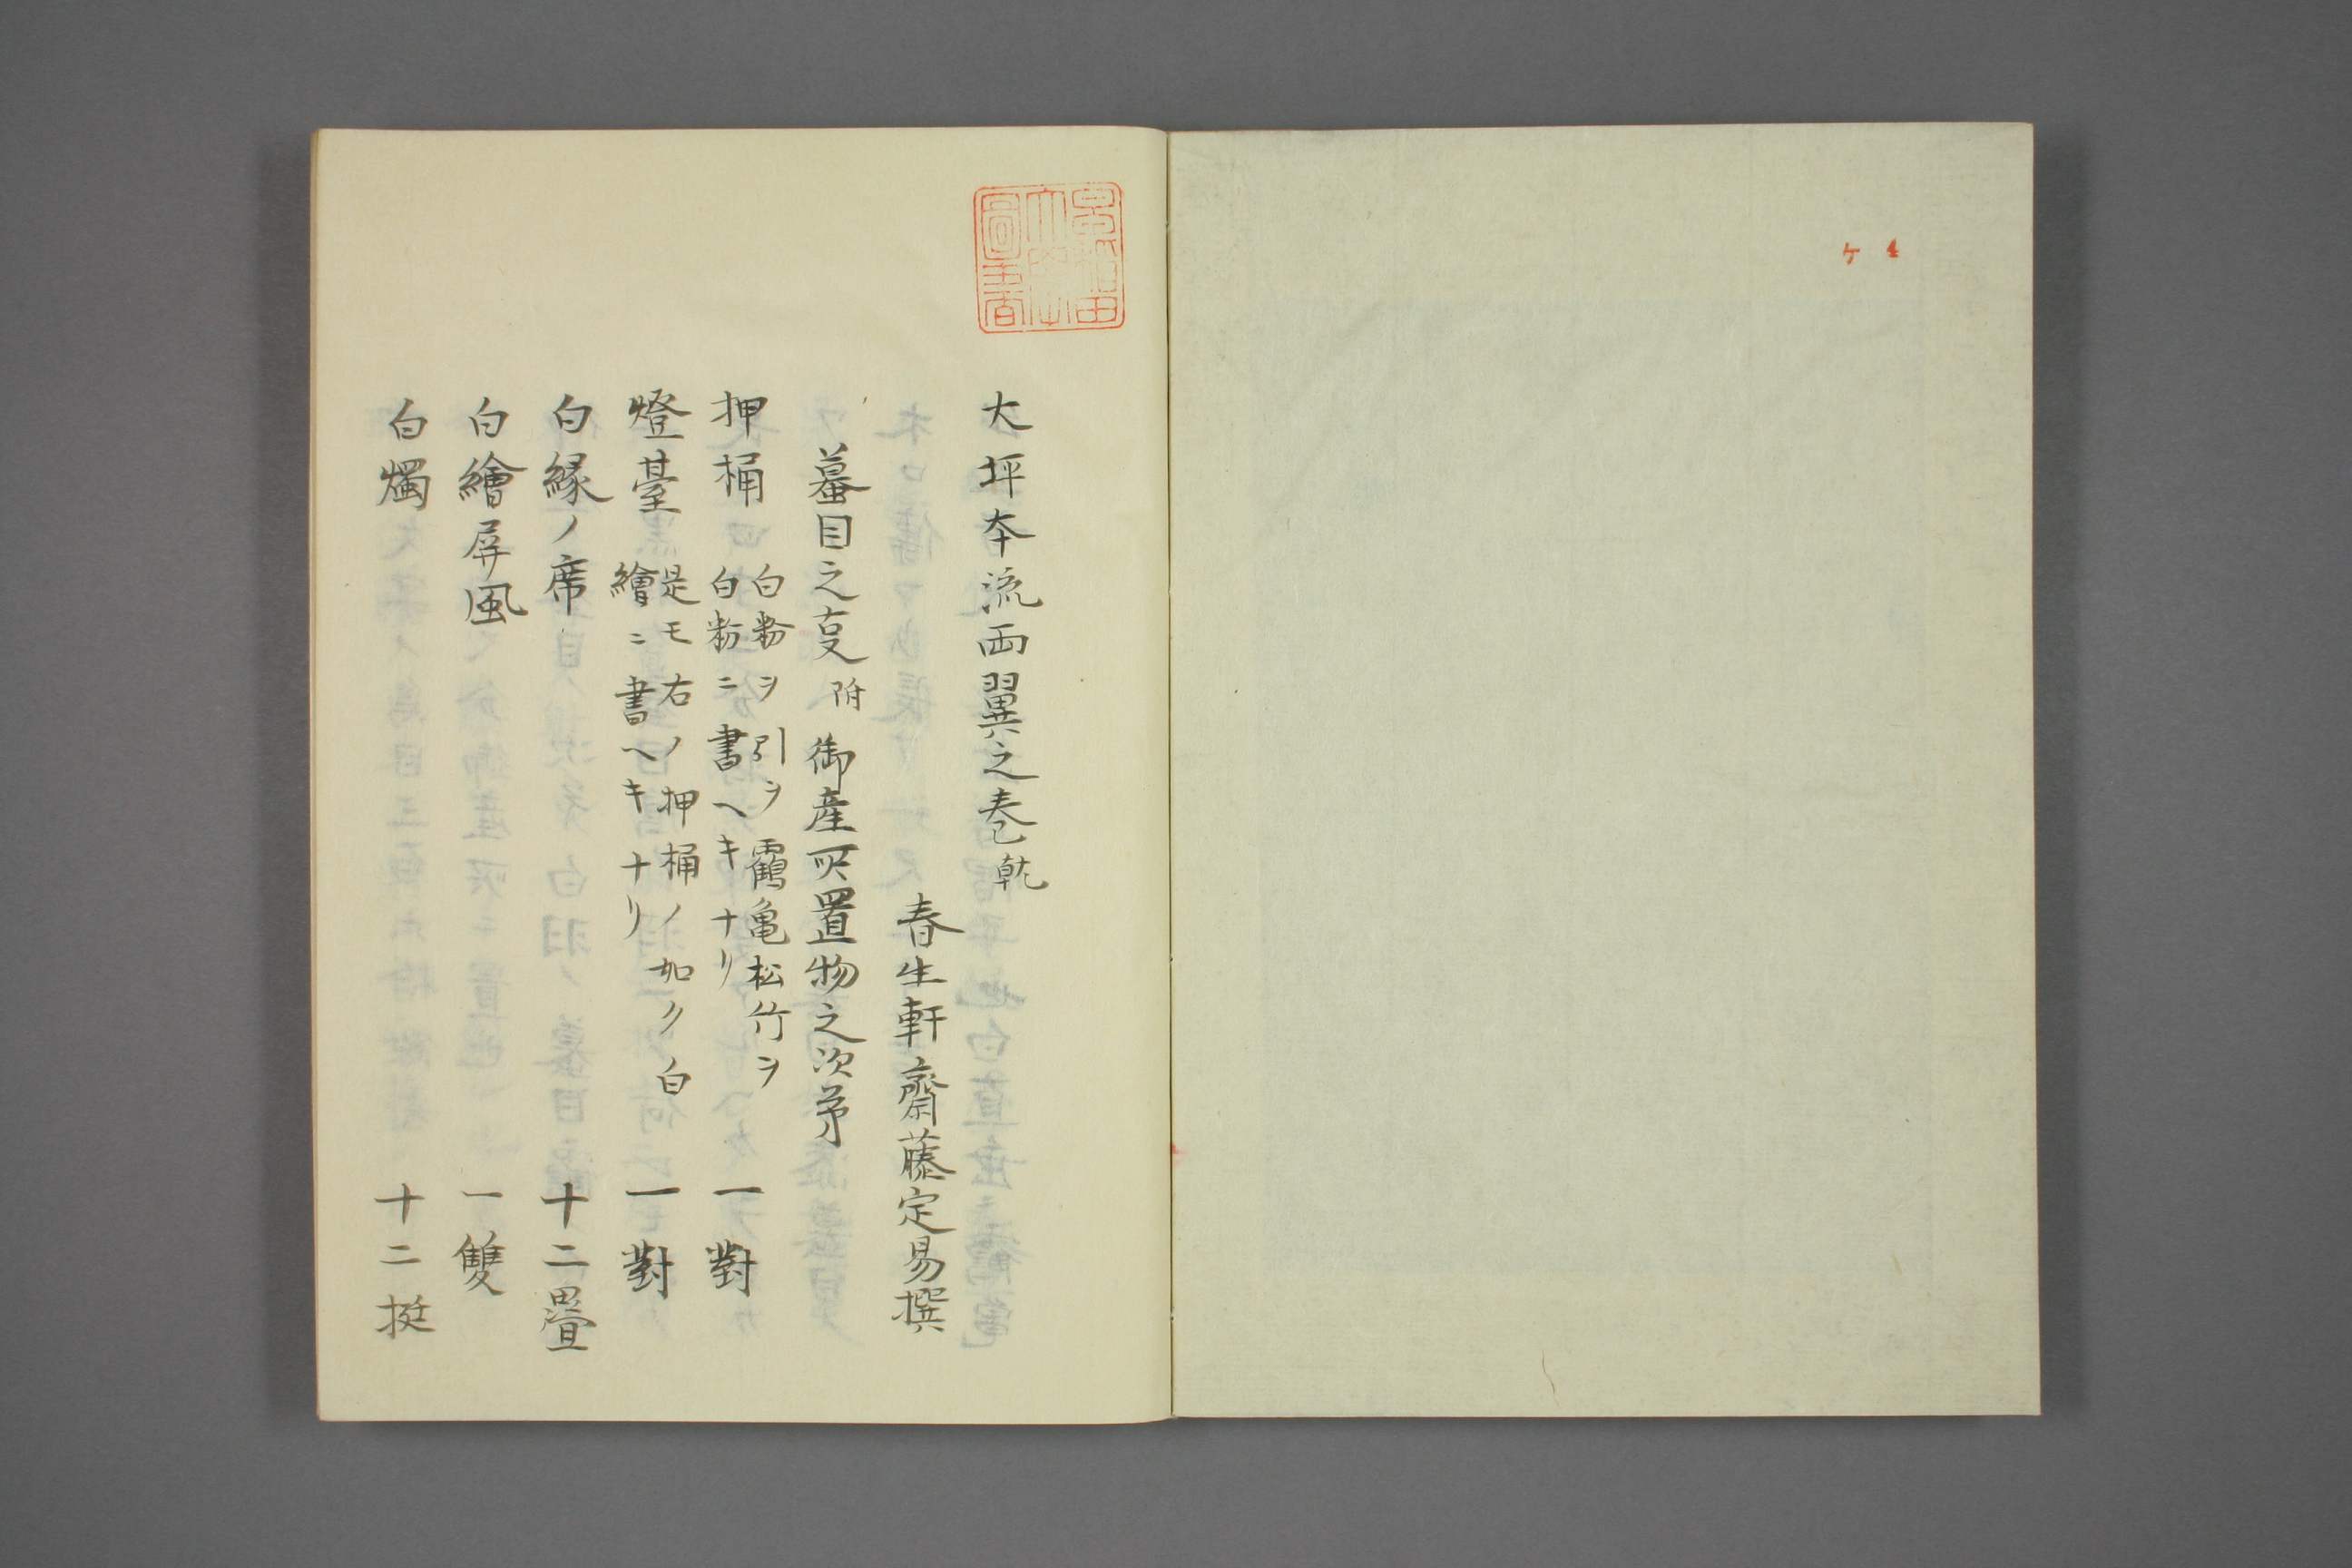 ケ 4
早稲田
大學
圖書
大坪本流両翼之巻乾
春生軒齋藤定易撰
蟇目之㕝 附 御産所置物之次第
押桶 白粉ヲ引ヲ靏亀松竹ヲ
白粉ニ書ヘキナリ 一對
燈臺 是モ右ノ押桶ノ如ク白
繪ニ書ヘキナリ 一對
白縁ノ席 十二畳
白繪屏風 一雙
白燭 十二挺